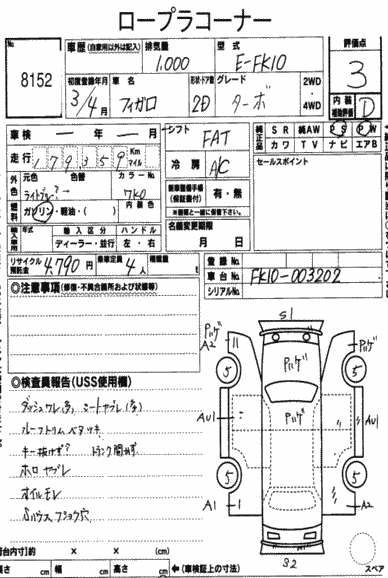 ロープラコーナー
No 8152
車歴 (自家用以外は記入)
排気量 1,000
型式 E-FK10
評価点 3
初度登録年月 3/4月
車名 フィガロ
形状・ドア数 2D
グレード ターボ
2WD・4WD
内装補助評価 D
車検 ー年ー月
シフト FAT
純正品 SR 純AW PS PW
カワ TV ナビ エアB
走行 179359 Km マイル
冷房 A/C
セールスポイント
外色 元色 色替 カラーNo
ライトブルー?→ 7K0
燃料 ガソリン・軽油・( ) 内装色
新車整備手帳(保証書付) 有・無
※書類と一緒に保管下さい
輸入車用 年式 輸入区分 ハンドル
ディーラー・並行 左・右
名義変更期限 月 日
リサイクル預託金 4,790円
乗車定員 4人
積載量
登録No
車台No FK10-003202
シリアルNo
◎注意事項 (修復・不具合箇所および状態等)
◎検査員報告(USS使用欄)
ダッシュワレ(多) シートヤブレ(多)
ルーフトリム ベタツキ
キー抜けず? トランク開かず
ホロ ヤブレ
オイルモレ
Sハウス フショク穴
S1
Pハゲ A2
Pハゲ
Pハゲ
5
5
AU1
Pハゲ
AU1
5
5
A1
A1
S2
荷台内寸)約 × × (cm)
長さ cm 幅 cm 高さ cm ←(車検証上の寸法)
スペア